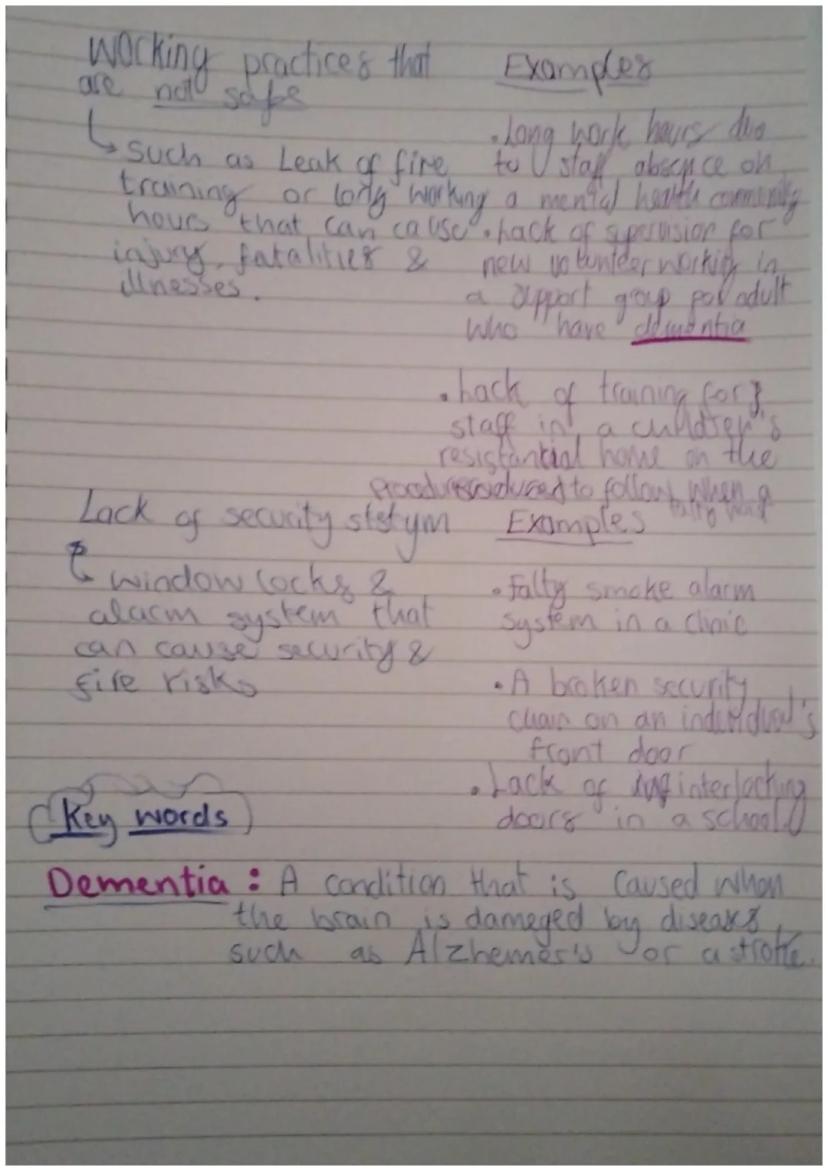 Working practices that
are not safe
↳ such as Leak of fire
training or long working
hours that can cause
injury, fatalities &
illnesses.
Examples
• Long work hours due
to staff absence on
a mental health community
• Lack of supervision for
new volunteer working in
a support group for adult
who have dementia
• Lack of training for
staff in a children's
home on the
to follow when a
Lack of security sistym
↳ window locks &
alarm system that
can cause security &
fire risks
Examples
• Falty smoke alarm
system in a clinic
• A broken security
chain on an individual's
front door
• Lack of interlocking
doors in a school
Key words
Dementia : A condition that is caused when
the brain is dameged by diseases,
such as Alzhemer's or a stroke.